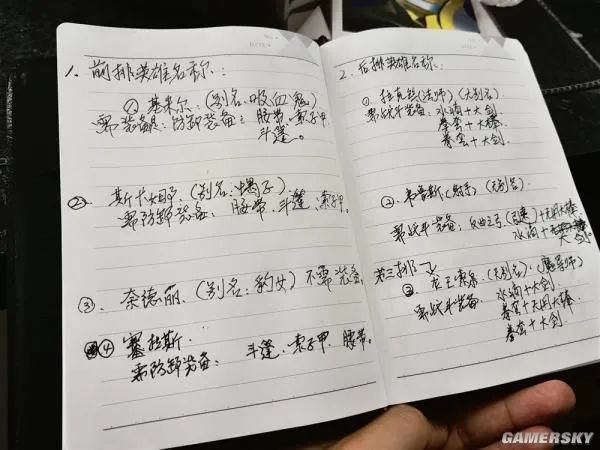 1. 前排英雄名称:
① 基米尔:(别名:吸血鬼)
需装备是:防卸装备:腰带、索子甲
斗篷。
②. 斯卡姆(别名:蝎子)
需防卸装备: 腰带、斗篷、索子甲。
③. 奈德丽.(别名:豹女)不需装备
④ 塞拉斯.
需防卸装备: 斗篷、索子甲、腰带。
2. 后排英雄名称:
①. 拉克丝(法师)(无别名)
需战斗装备:水滴+大剑
拳套+大棒
拳套+大剑.
②. 韦鲁斯(射手)(无别名).
需战斗装备: 反曲之弓(攻速)+无用大棒
水滴+大剑。
第三排
③. 龙王索尔(无别名).(魔导师)
需战斗装备. 水滴+大剑
拳套+无用大棒
拳套+大剑.
GAMERSKY